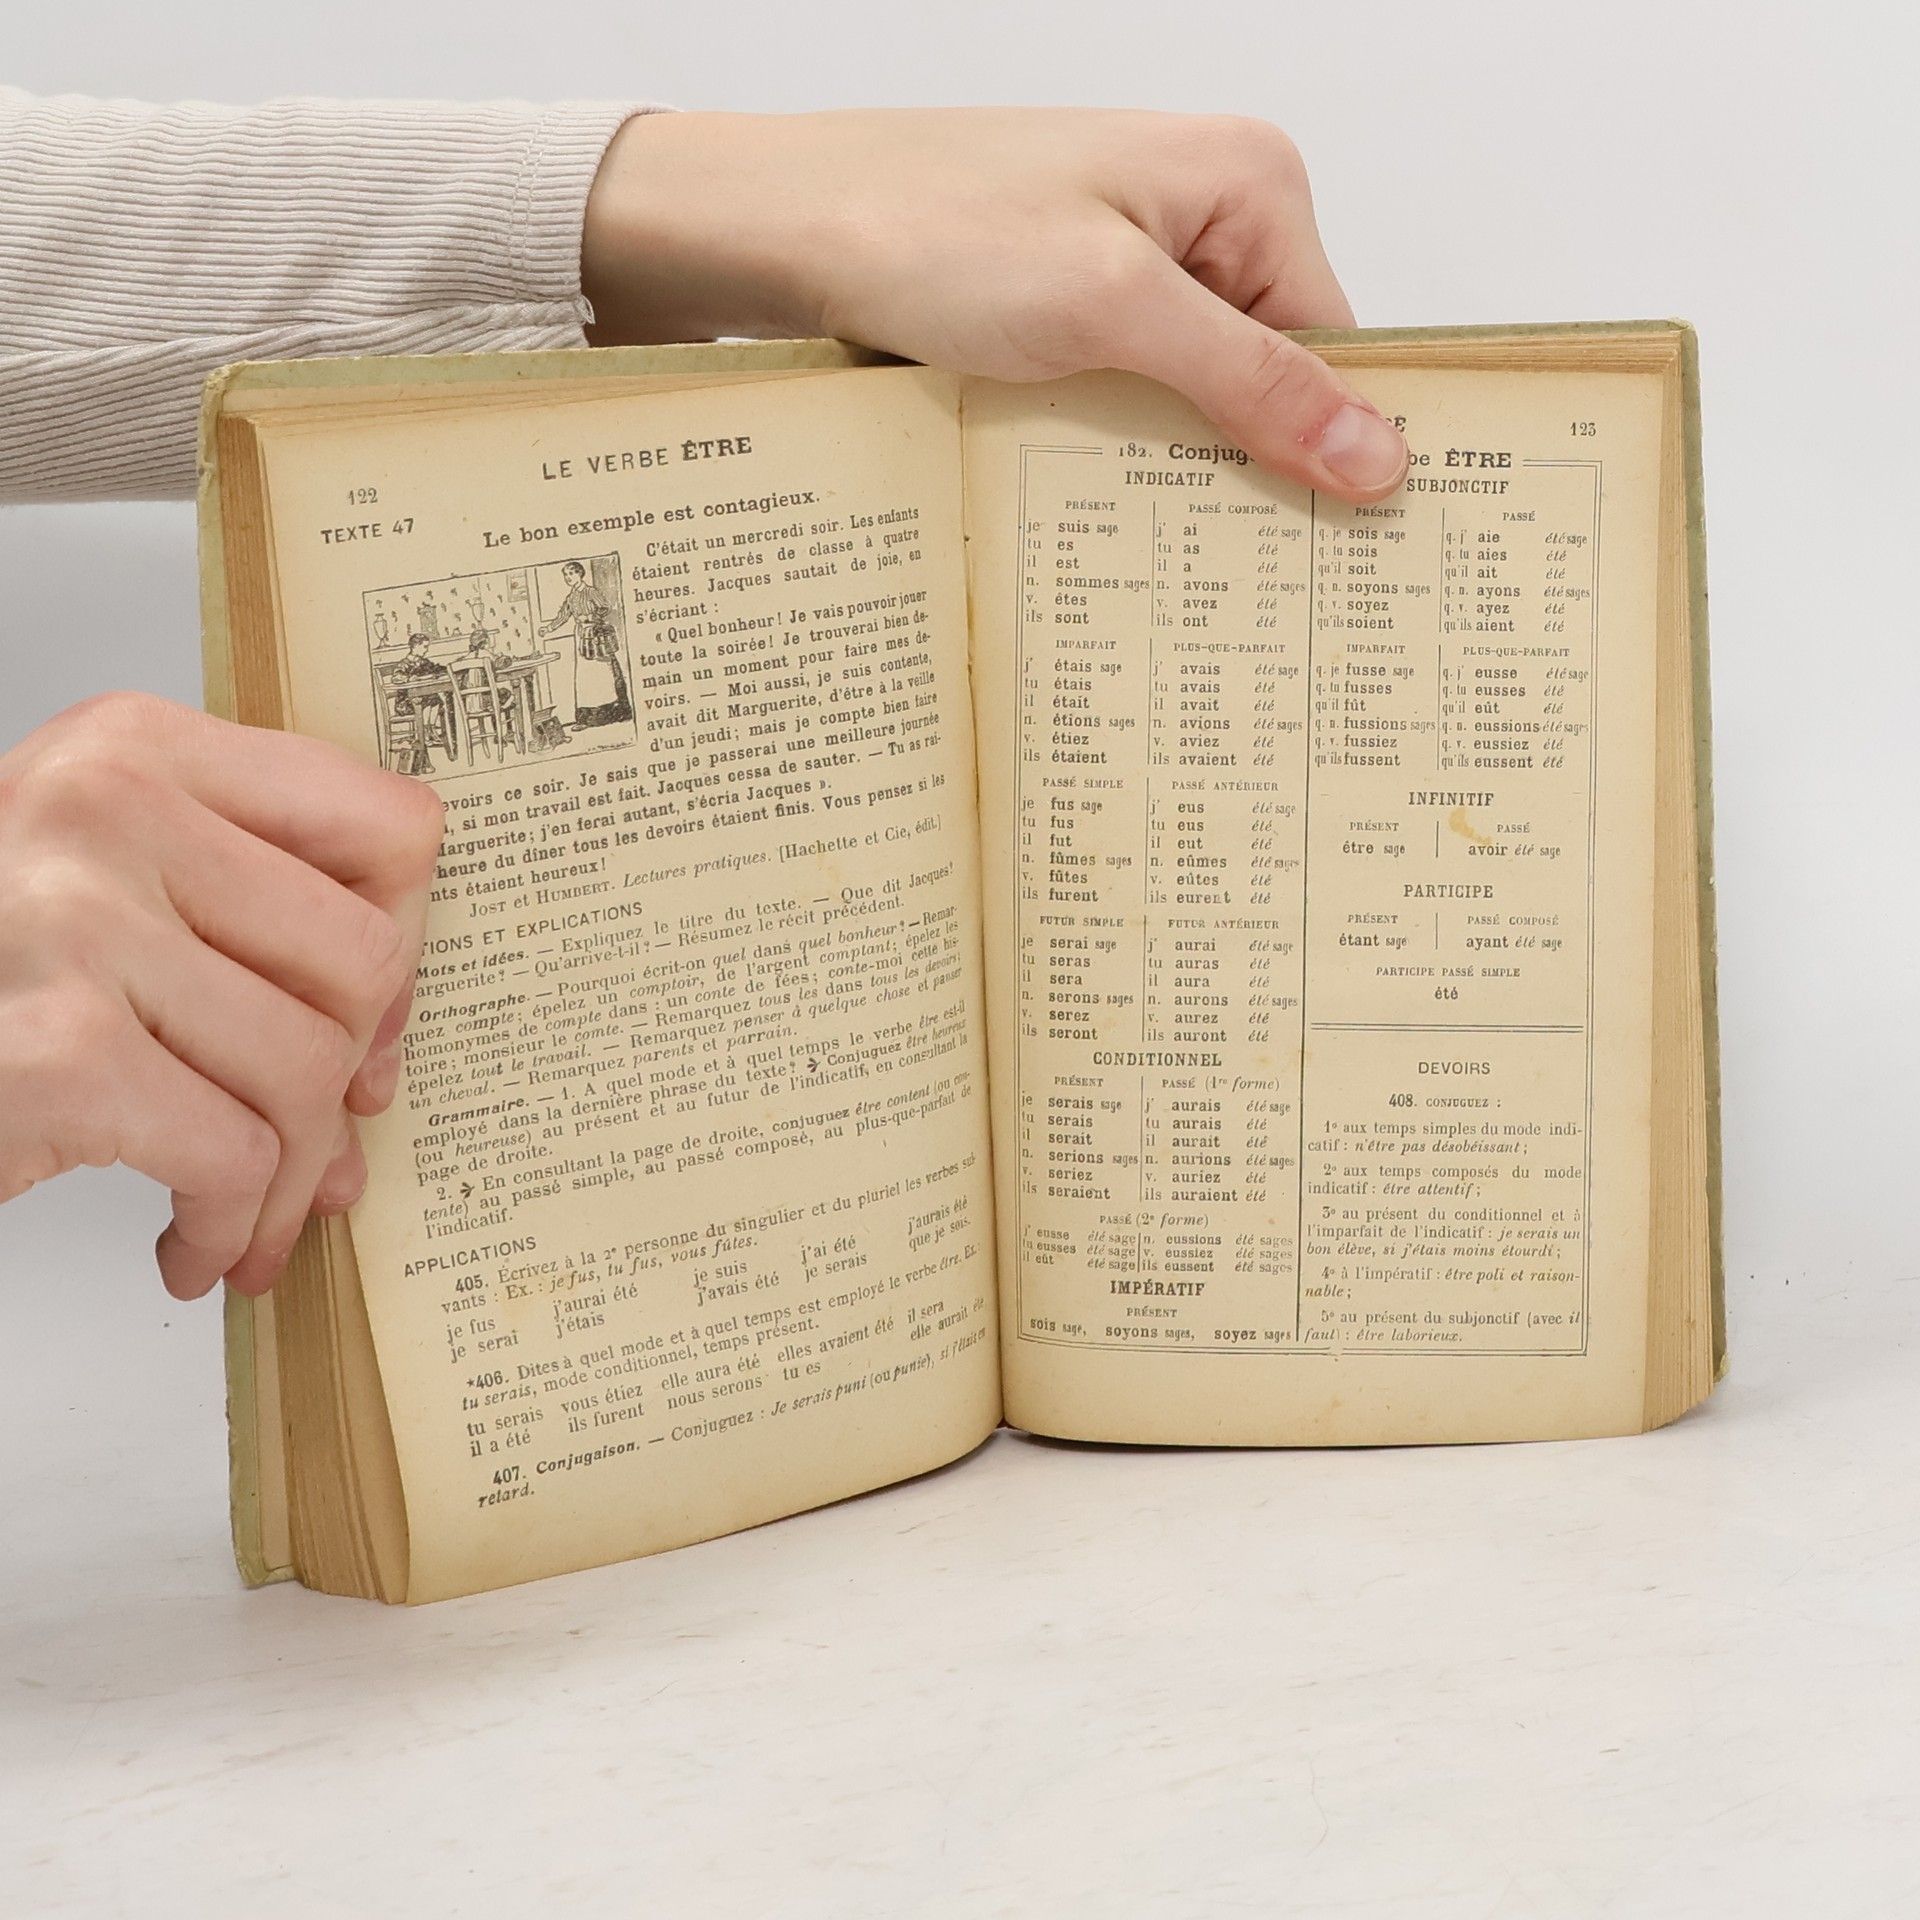 122
LE VERBE ÊTRE
TEXTE 47
Le bon exemple est contagieux.
C'était un mercredi soir. Les enfants
étaient rentrés de classe à quatre
heures. Jacques sautait de joie, en
s'écriant :
« Quel bonheur! Je vais pouvoir jouer
toute la soirée! Je trouverai bien de-
main un moment pour faire mes de-
voirs. — Moi aussi, je suis contente,
avait dit Marguerite, d'être à la veille
d'un jeudi; mais je compte bien faire
evoirs ce soir. Je sais que je passerai une meilleure journée
, si mon travail est fait. Jacques cessa de sauter. — Tu as rai-
Marguerite; j'en ferai autant, s'écria Jacques ».
'heure du dîner tous les devoirs étaient finis. Vous pensez si les
nts étaient heureux!
JOST et HUMBERT. Lectures pratiques. [Hachette et Cie, édit.]
TIONS ET EXPLICATIONS
Mots et idées. — Expliquez le titre du texte. — Que dit Jacques?
arguerite? — Qu'arrive-t-il? — Résumez le récit précédent.
Orthographe. — Pourquoi écrit-on quel dans quel bonheur? — Remar-
quez compte; épelez un comptoir, de l'argent comptant; épelez les
homonymes de compte dans : un conte de fées; conte-moi cette his-
toire; monsieur le comte. — Remarquez tous les dans tous les devoirs;
épelez tout le travail. — Remarquez penser à quelque chose et panser
un cheval. — Remarquez parents et parrain.
Grammaire. — 1. A quel mode et à quel temps le verbe être est-il
employé dans la dernière phrase du texte? Conjuguez être heureux
(ou heureuse) au présent et au futur de l'indicatif, en consultant la
page de droite.
2. En consultant la page de droite, conjuguez être content (ou con-
tente) au passé simple, au passé composé, au plus-que-parfait de
l'indicatif.
APPLICATIONS
405. Écrivez à la 2e personne du singulier et du pluriel les verbes sui-
vants : Ex. : je fus, tu fus, vous fûtes.
je fus j'aurai été je suis j'ai été j'aurais été
je serai j'étais j'avais été je serais que je sois.
*406. Dites à quel mode et à quel temps est employé le verbe être. Ex. :
tu serais, mode conditionnel, temps présent.
tu serais vous étiez elle aura été elles avaient été il sera
il a été ils furent nous serons tu es elle aurait été
407. Conjugaison. — Conjuguez : Je serais puni (ou punie), si j'étais en
retard.
123
182. Conjug be ÊTRE
INDICATIF
PRÉSENT PASSÉ COMPOSÉ
je suis sage j' ai été sage
tu es tu as été
il est il a été
n. sommes sages n. avons été sages
v. êtes v. avez été
ils sont ils ont été
IMPARFAIT PLUS-QUE-PARFAIT
j' étais sage j' avais été sage
tu étais tu avais été
il était il avait été
n. étions sages n. avions été sages
v. étiez v. aviez été
ils étaient ils avaient été
PASSÉ SIMPLE PASSÉ ANTÉRIEUR
je fus sage j' eus été sage
tu fus tu eus été
il fut il eut été
n. fûmes sages n. eûmes été sages
v. fûtes v. eûtes été
ils furent ils eurent été
FUTUR SIMPLE FUTUR ANTÉRIEUR
je serai sage j' aurai été sage
tu seras tu auras été
il sera il aura été
n. serons sages n. aurons été sages
v. serez v. aurez été
ils seront ils auront été
CONDITIONNEL
PRÉSENT PASSÉ (1re forme)
je serais sage j' aurais été sage
tu serais tu aurais été
il serait il aurait été
n. serions sages n. aurions été sages
v. seriez v. auriez été
ils seraient ils auraient été
PASSÉ (2e forme)
j' eusse été sage n. eussions été sages
tu eusses été sage v. eussiez été sages
il eût été sage ils eussent été sages
IMPÉRATIF
PRÉSENT
sois sage, soyons sages, soyez sages
SUBJONCTIF
PRÉSENT PASSÉ
q. je sois sage q. j' aie été sage
q. tu sois q. tu aies été
qu'il soit qu'il ait été
q. n. soyons sages q. n. ayons été sages
q. v. soyez q. v. ayez été
qu'ils soient qu'ils aient été
IMPARFAIT PLUS-QUE-PARFAIT
q. je fusse sage q. j' eusse été sage
q. tu fusses q. tu eusses été
qu'il fût qu'il eût été
q. n. fussions sages q. n. eussions été sages
q. v. fussiez q. v. eussiez été
qu'ils fussent qu'ils eussent été
INFINITIF
PRÉSENT PASSÉ
être sage avoir été sage
PARTICIPE
PRÉSENT PASSÉ COMPOSÉ
étant sage ayant été sage
PARTICIPE PASSÉ SIMPLE
été
DEVOIRS
408. CONJUGUEZ :
1° aux temps simples du mode indi-
catif : n'être pas désobéissant;
2° aux temps composés du mode
indicatif : être attentif;
3° au présent du conditionnel et à
l'imparfait de l'indicatif : je serais un
bon élève, si j'étais moins étourdi;
4° à l'impératif : être poli et raison-
nable;
5° au présent du subjonctif (avec il
faut) : être laborieux.